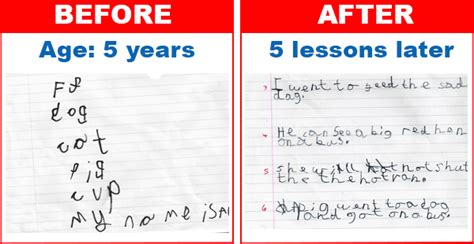 BEFORE
Age: 5 years
dog
cat
pig
cup
My name is
AFTER
5 lessons later
I went to feed the sad
dog.
4 He can see a big red hen
on a bus.
5 not shut
the
6 pig went to a dog
and got on a bus.